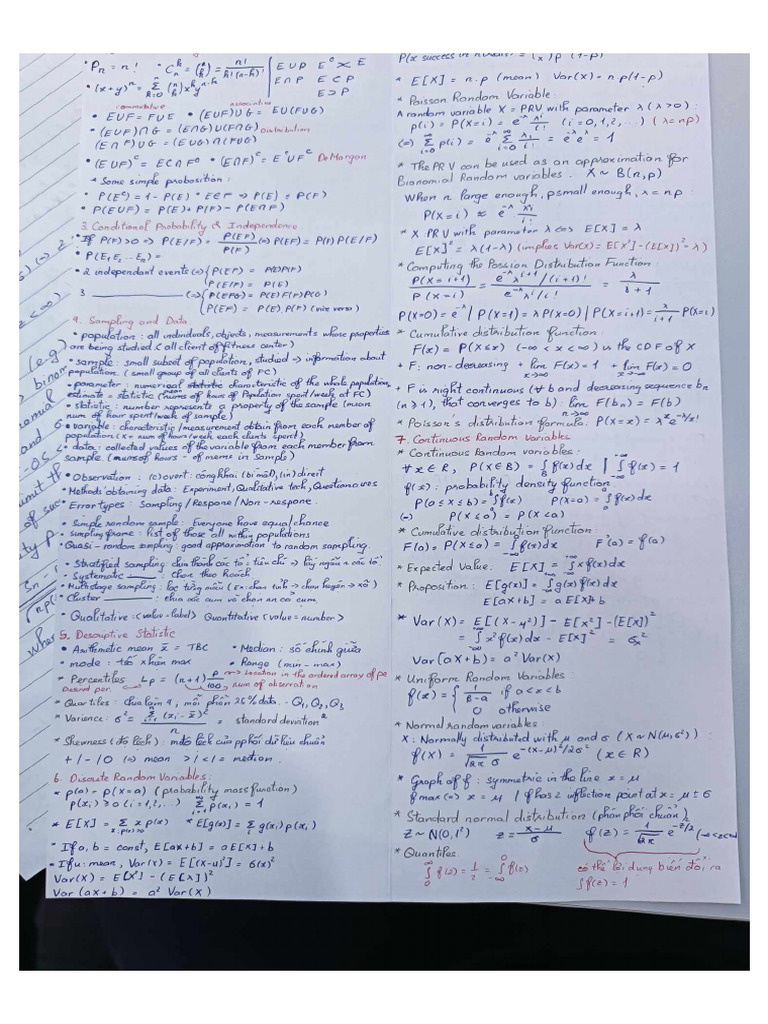 • Pn = n! • C_n^k = (n k) = n!/k!(n-k)! E∪P E^c ⊂ E
• (x+y)^n = Σ_{k=0}^n (n k) x^k y^{n-k} E∩P E⊂P
E⊃P
commutative associative
• E∪F = F∪E • (E∪F)∪G = E∪(F∪G)
• (E∪F)∩G = (E∩G)∪(F∩G) Distributions
(E∩F)∪G = (E∪G)∩(F∪G)
• (E∪F)^c = E^c∩F^c • (E∩F)^c = E^c∪F^c De Morgan
* Some simple proposition :
• P(E^c) = 1 - P(E) • E⊂F ⇒ P(E) ≤ P(F)
• P(E∪F) = P(E) + P(F) - P(E∩F)
3. Conditional Probability & Independence
• If P(F)>0 ⇒ P(E/F) = P(EF)/P(F) ⇔ P(EF) = P(F)P(E/F)
• P(E1E2 ... En) =
• 2 independent events ⇔ { P(EF) = P(E)P(F)
P(E/F) = P(E)
3 ⇔ { P(EFG) = P(E)P(F)P(G)
P(EF) = P(E).P(F) (vice verso)
4. Sampling and Data
• population : all individuals, objects, measurements whose properties
are being studied (all client of fitness center)
• sample : small subset of population, studied → information about
population (small group of all clients of FC)
• parameter : numerical characteristic of the whole population,
estimate = statistic (mean of hours of Population spent/week at FC)
• statistic : number represents a property of the sample (mean
num of hour spent/week of sample)
• variable : characteristic/measurement obtain from each member of
population (X = num of hours/week each clients spent)
• data : collected values of the variable from each member from
sample (hours of mems in sample)
• Observation : (c)overt : công khai (bí mật), (in)direct
• Methods obtaining data : Experiment, Qualitative tech, Questionaires
• Error types : Sampling / Respone / Non-respone.
• Simple random sample : Everyone have equal chance
• sampling frame : list of those all within populations
• Quasi-random sampling : good approximation to random sampling.
• Stratified sampling : chia thành các tổ : tiêu chí → lấy ngẫu n các tổ
• Systematic : chọn theo
• Multistage sampling : lọc từng miếu (Ex: chọn tỉnh → chọn huyện → xã)
• Cluster : chia các cụm và chọn
• Qualitative : (value = label) Quantitative (value = number)
5. Desciuptive Statistic
• Arithmetic mean x̄ = TBC • Median : số chính giữa
• mode : tần xhiện max • Range (min - max)
* Percentiles Lp = (n+1) P/100 → location in the ordered array of pe
Desired per. num of observation
* Quartiles : chia làm 4, mỗi phần 25% data. - Q1, Q2, Q3
* Varience : σ² = Σ_{i=1}^n (xi - x̄)²/n = standard deviation²
* Skewness (độ lệch) : mđộ lệch của pphối dữ liệu chuẩn
+ / - / 0 ⇔ mean > / < / = median
6. Discrete Random Variables :
* p(a) = P(X=a) (probability mass function)
p(xi) ≥ 0 (i=1,2,...) Σ_{i=1}^∞ p(xi) = 1
* E[X] = Σ_{x:p(x)>0} x p(x) * E[g(x)] = Σ_i g(xi)p(xi)
• If a, b = const, E[ax+b] = a E[x] + b
• If u: mean, Var(X) = E[(X-u)²] = σ(x)²
Var(X) = E[X²] - (E[X])²
Var(aX+b) = a² Var(X)
* E[X] = n.p (mean) Var(X) = n p(1-p)
* Poisson Random Variable :
A random variable X = PRV with parameter λ (λ>0) :
p(i) = P(X=i) = e^{-λ} λ^i/i! (i=0,1,2,...) (λ=np)
⇔ Σ_{i=0}^∞ p(i) = e^{-λ} Σ_{i=0}^∞ λ^i/i! = e^{-λ} e^λ = 1
* The PRV can be used as an approximation for
Binomial Random variables. X ~ B(n,p)
When n large enough, p small enough, λ = np :
P(X=i) ≈ e^{-λ} λ^i/i!
* X PRV with parameter λ ⇔ E[X] = λ
E[X]² = λ(1-λ) (implies Var(X) = E[X²] - (E[X])² = λ)
* Computing the Possion Distribution Function :
P(X=i+1)/P(X=i) = e^{-λ} λ^{i+1}/(i+1)! / e^{-λ} λ^i/i! = λ/i+1
P(X=0) = e^{-λ} | P(X=1) = λP(X=0) | P(X=i+1) = λ/i+1 P(X=i)
* Cumulative distribution function :
F(x) = P(X≤x) (-∞<x<∞) is the CDF of X
+ F : non-decreasing + lim_{x→∞} F(x) = 1 + lim_{x→-∞} F(x) = 0
+ F is right continuous (∀ b and decreasing sequence bn
(n≥1), that converges to b) : lim_{n→∞} F(bn) = F(b)
* Poisson's distribution formula : P(X=x) = λ^x e^{-λ}/x!
7. Continuous Random Variables
* Continuous random variables :
∀x∈R, P(X∈B) = ∫_B f(x)dx | ∫_{-∞}^∞ f(x) = 1
f(x) : probability density function
P(a≤x≤b) = ∫_a^b f(x) P(X=a) = ∫_a^a f(x)dx
⇔ P(X≤a) = P(X<a)
* Cumulative distribution function :
F(a) = P(X≤a) = ∫_{-∞}^a f(x)dx F'(a) = f(a)
* Expected Value : E[X] = ∫_{-∞}^∞ x f(x)dx
* Proposition : E[g(x)] = ∫_{-∞}^∞ g(x)f(x)dx
E[aX+b] = a E[X]+b
* Var(X) = E[(X-μ)²] = E[X²] - (E[X])²
= ∫_{-∞}^∞ x²f(x)dx - E[X]² = σx²
Var(aX+b) = a² Var(X)
* Uniform Random Variables :
f(x) = { 1/B-a if a<x<b
0 otherwise
* Normal Random variables :
X : Normally distributed with μ and σ (X ~ N(μ,σ²))
f(X) = 1/√2π σ e^{-(x-μ)²/2σ²} (x∈R)
* Graph of f : symmetric in the line x = μ
f max ⇔ x = μ / f has 2 inflection point at x = μ ± σ
* Standard normal distribution (phân phối chuẩn)
Z ~ N(0,1²) z = x-μ/σ f(z) = 1/√2π e^{-z²/2} (-∞<z<∞)
* Quantiles
∫_0^∞ f(z) = 1/2 = ∫_{-∞}^0 f(z) có thể lợi dụng biến đổi ra
∫f(z) = 1